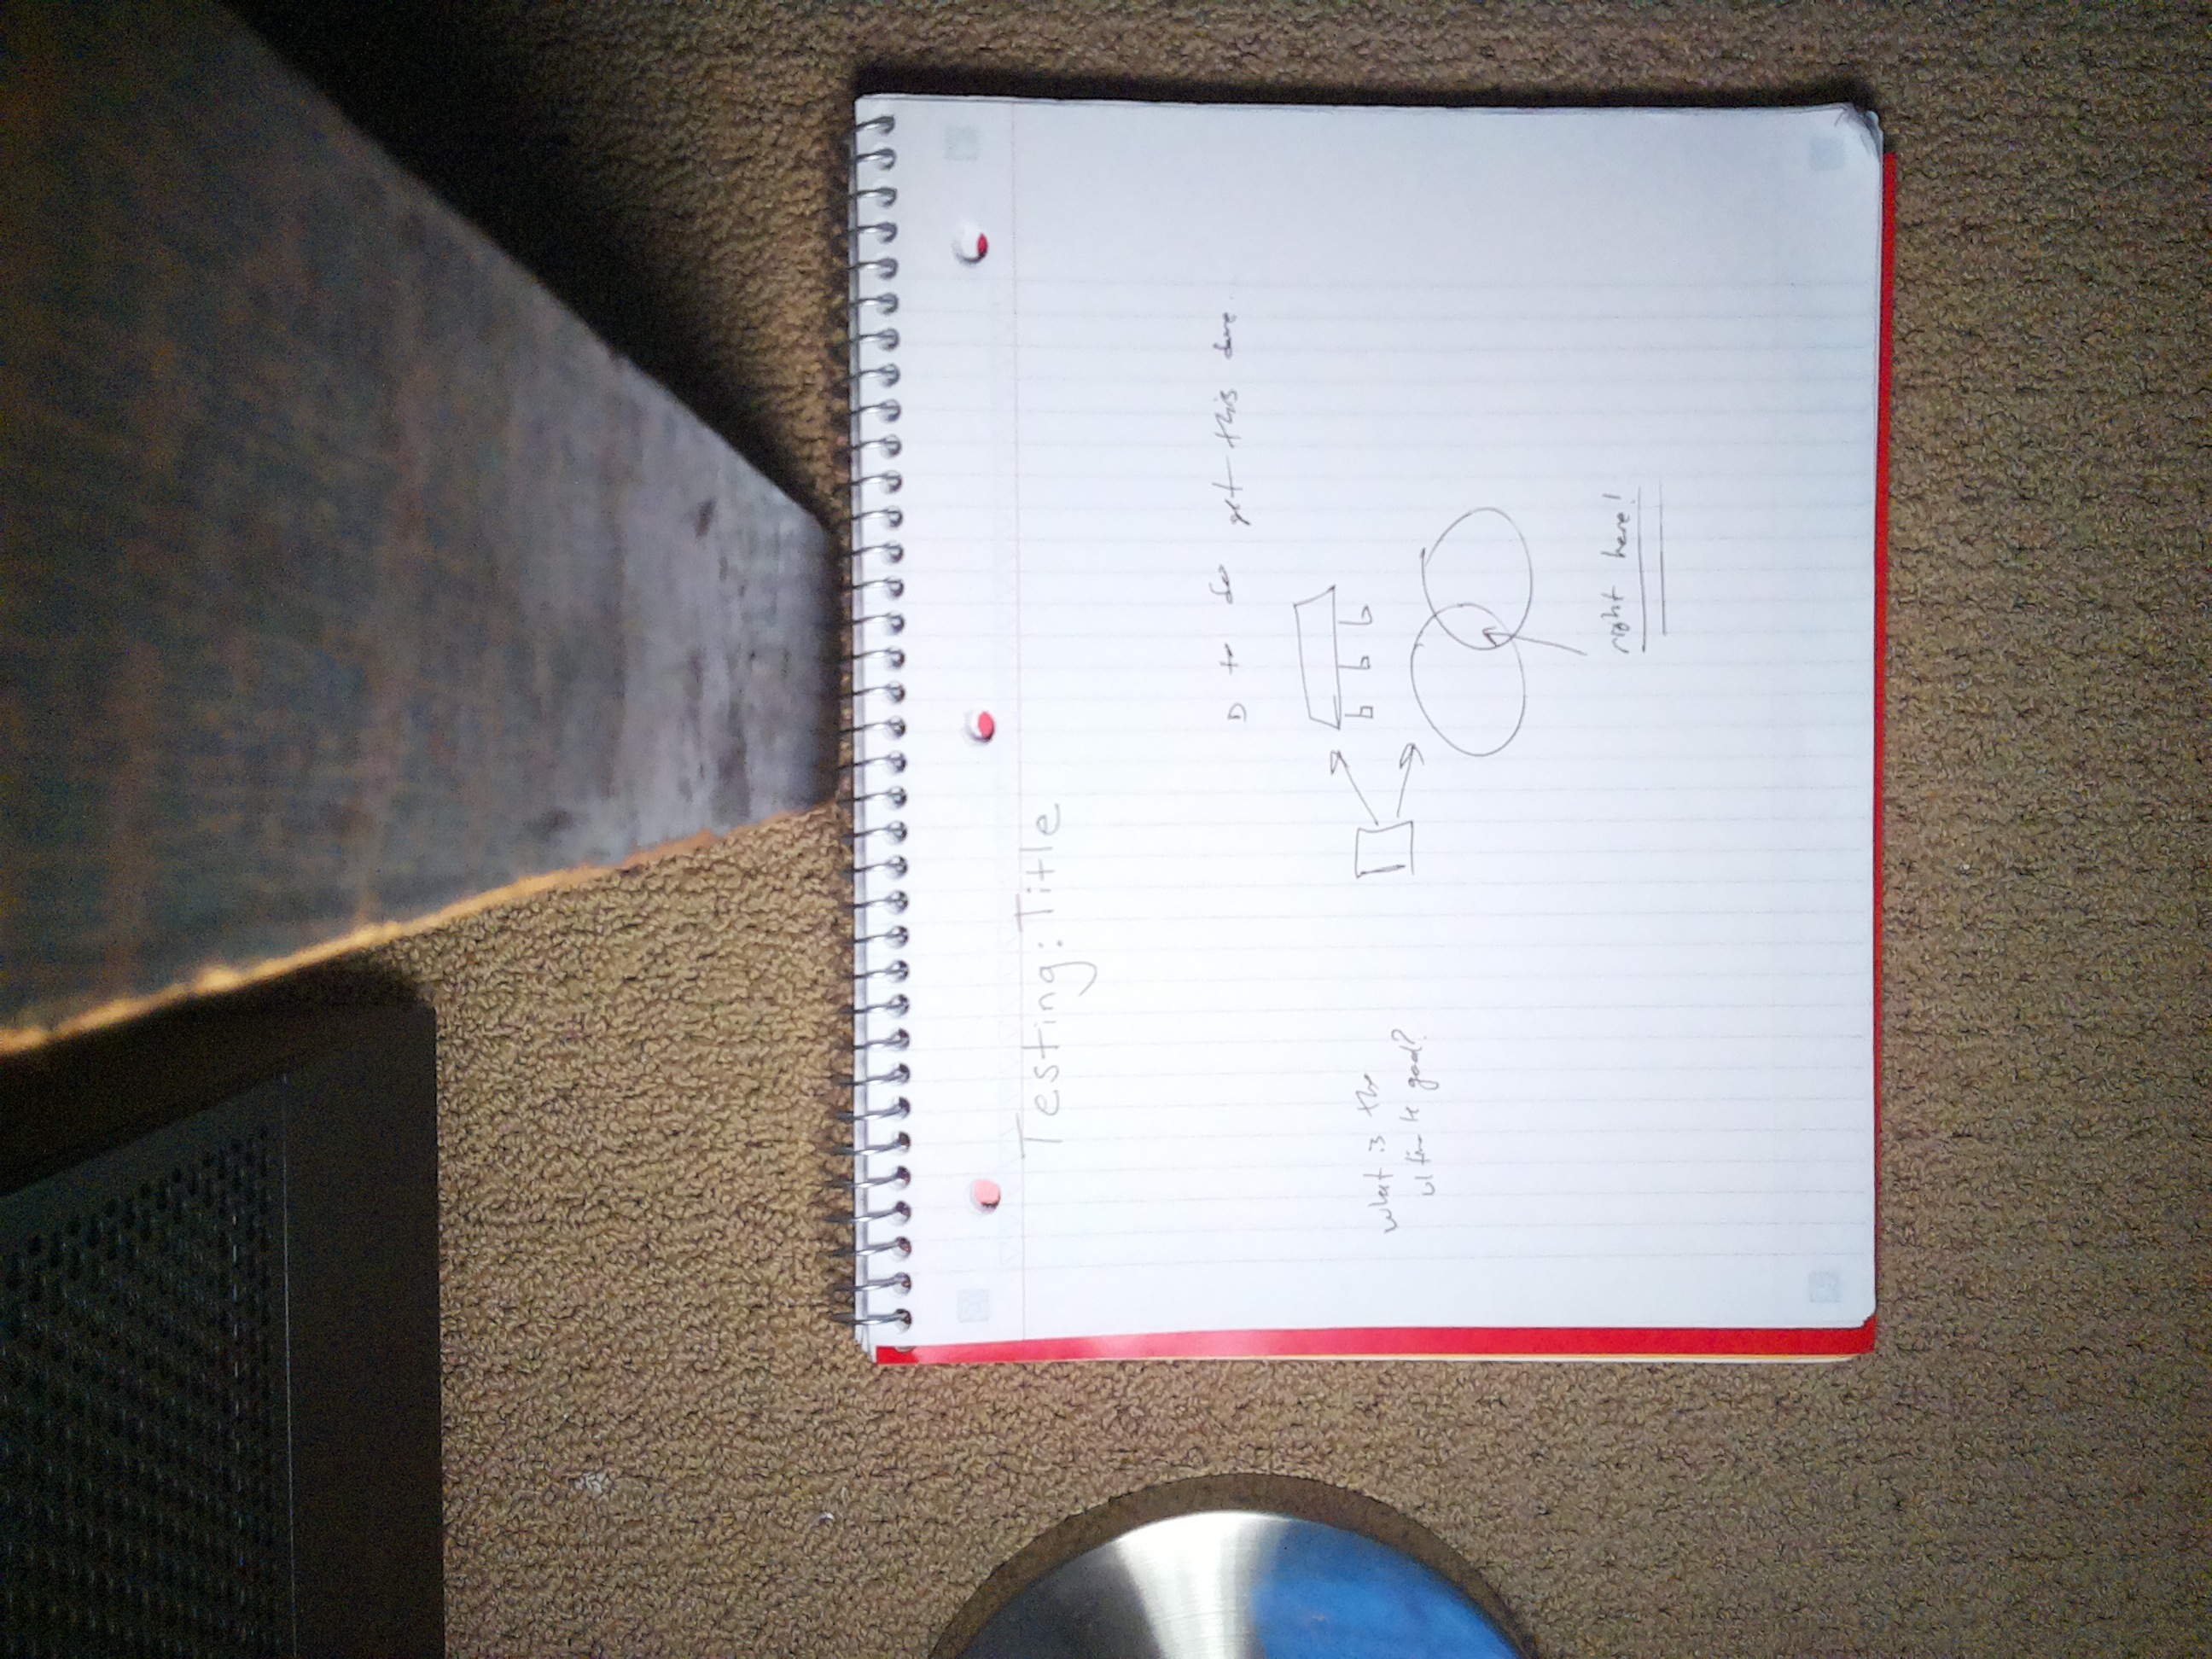 Testing: Title
D to do get this done.
b b b
what is the
ultimate goal?
right here!